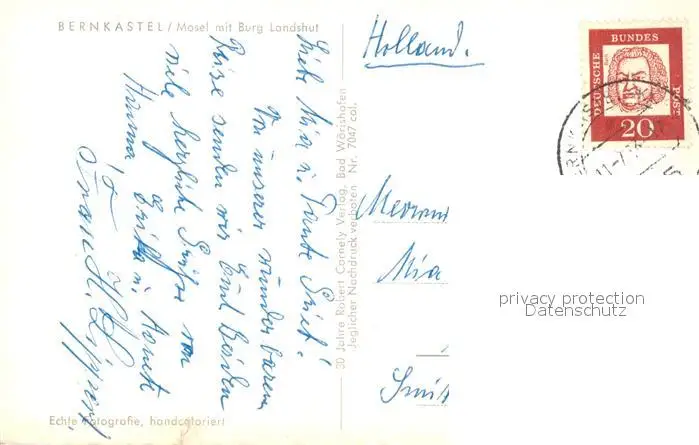 BERNKASTEL / Mosel mit Burg Landshut
Liebe Mia u. Tante Smit!
Von unserer wunderbaren
Reise senden wir Euch beiden
viele herzliche Grüße von
Hanna, Erika u. Agnete
Frau H.
30 Jahre Robert Cornely Verlag, Bad Wörishofen
Jeglicher Nachdruck verboten Nr. 7047 col.
Echte Fotografie, handcoloriert
Holland.
DEUTSCHE
BUNDES
POST
20
Mevrouw
Mia
Smit
privacy protection
Datenschutz